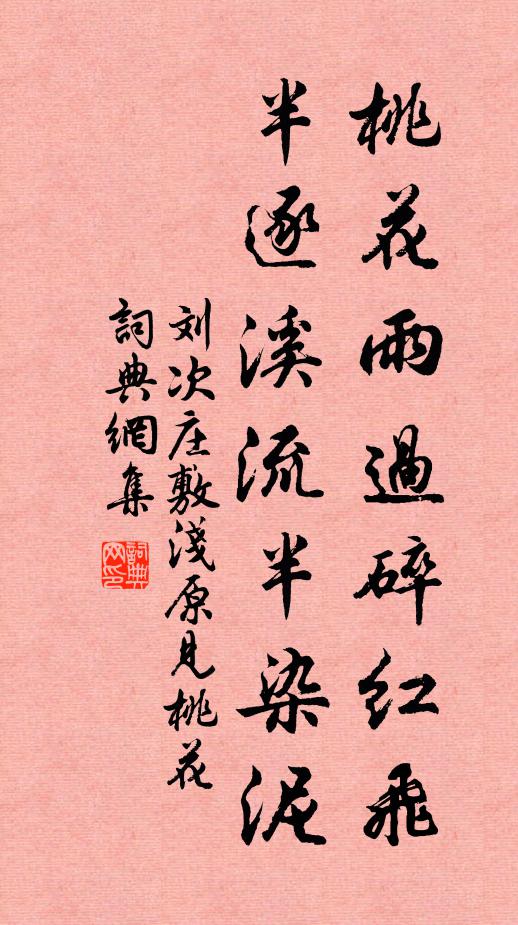 桃花雨過碎红飛
半逐溪流半染泥
刘次庄敷淺原見桃花
詞典網集
詞典網印